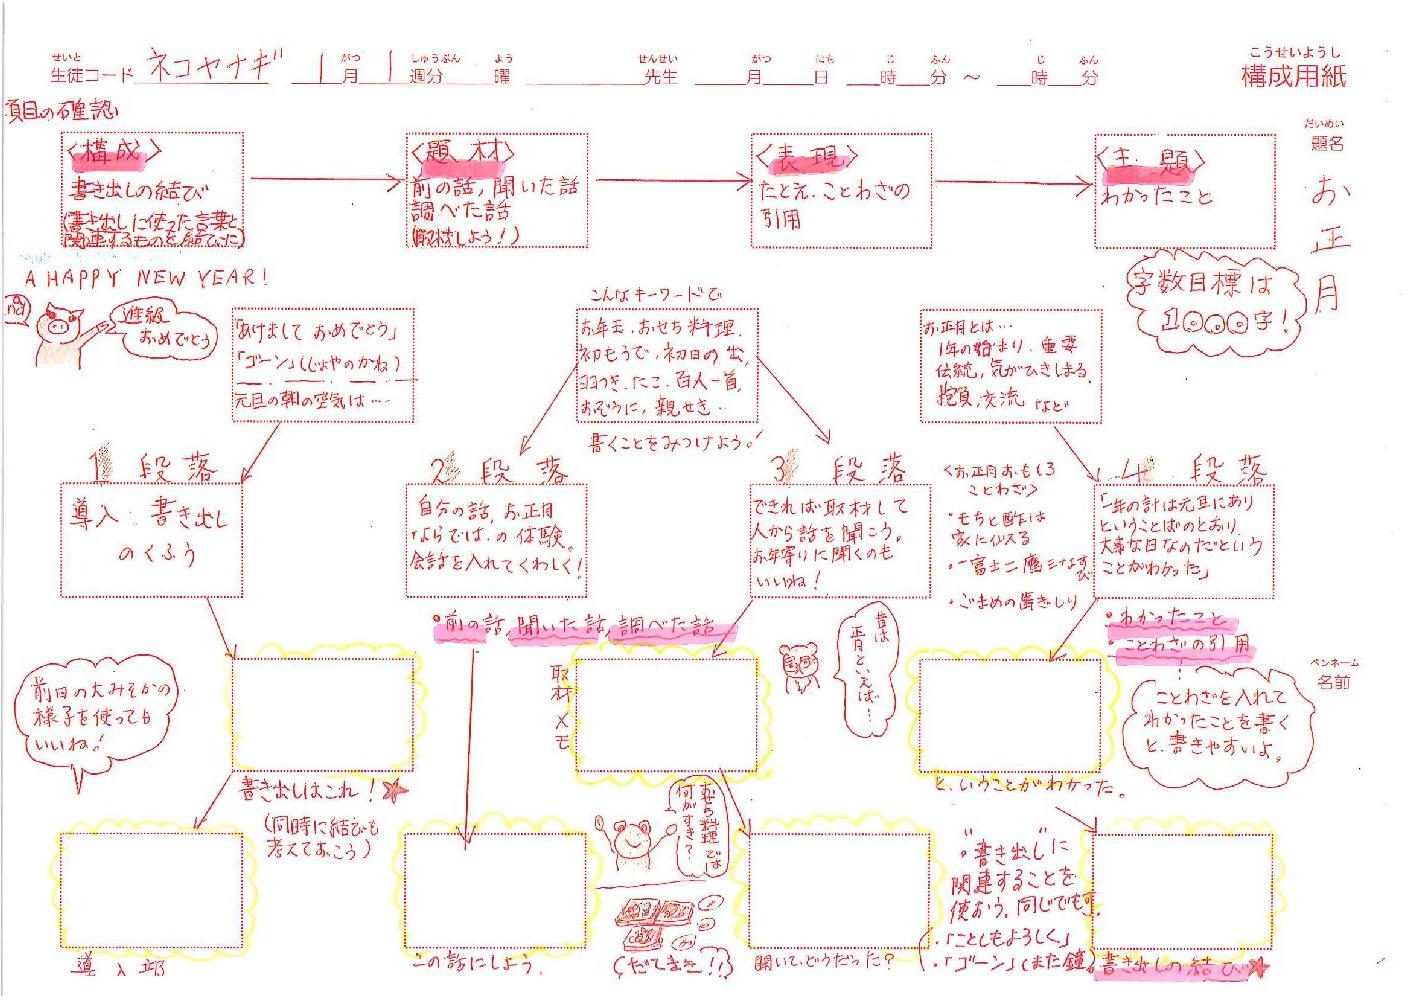 せいと
生徒コード ネコヤナギ 1月 1週分 曜 先生 月 日 時 分 ～ 時 分
がつ しゅうぶん よう せんせい がつ にち じ ふん じ ふん
こうせいようし
構成用紙
項目の確認
〈構成〉
書き出しの結び
(書き出しに使った言葉と
関連するものを結びに)
〈題材〉
前の話,聞いた話
調べた話
(取材しよう!)
〈表現〉
たとえ、ことわざの
引用
〈主題〉
わかったこと
だいめい
題名
お正月
字数目標は
1000字!
A HAPPY NEW YEAR!
進級
おめでとう
「あけまして おめでとう」
「ゴーン」(じょやのかね)
元旦の朝の空気は…
こんなキーワードで
お年玉、おせち料理、
初もうで、初日の出、
羽つき、たこ、百人一首、
おぞうに、親せき…
書くことをみつけよう!
お正月とは…
1年の始まり、重要
伝統、気がひきしまる、
抱負、交流 など
1段落
導入・書き出し
のくふう
2段落
自分の話、お正月
ならでは、の体験。
会話を入れてくわしく!
3段落
できれば取材して
人から話を聞こう。
お年寄りに聞くのも
いいね!
<お正月おもしろ
ことわざ>
・もちと酢は
家に似る
・一富士二鷹三なすび
・ごまめの歯ぎしり
4段落
「一年の計は元旦にあり
ということばのとおり、
大事な日なのだという
ことがわかった」
・前の話,聞いた話,調べた話
・わかったこと
・ことわざの引用
ことわざを入れて
わかったことを書く
と、書きやすいよ。
ペンネーム
名前
前日の大みそかの
様子を使っても
いいね!
取材メモ
昔は
正月といえば…
書き出しはこれ!
(同時に結びも
考えておこう)
と、いうことがわかった。
おせち料理では
何がすき?
(だてまき!!)
"書き出し"に
関連することを
使おう。同じでも可。
・「ことしもよろしく」
・「ゴーン」(また鐘)
導入部
この話にしよう。
聞いて、どうだった?
書き出しの結び